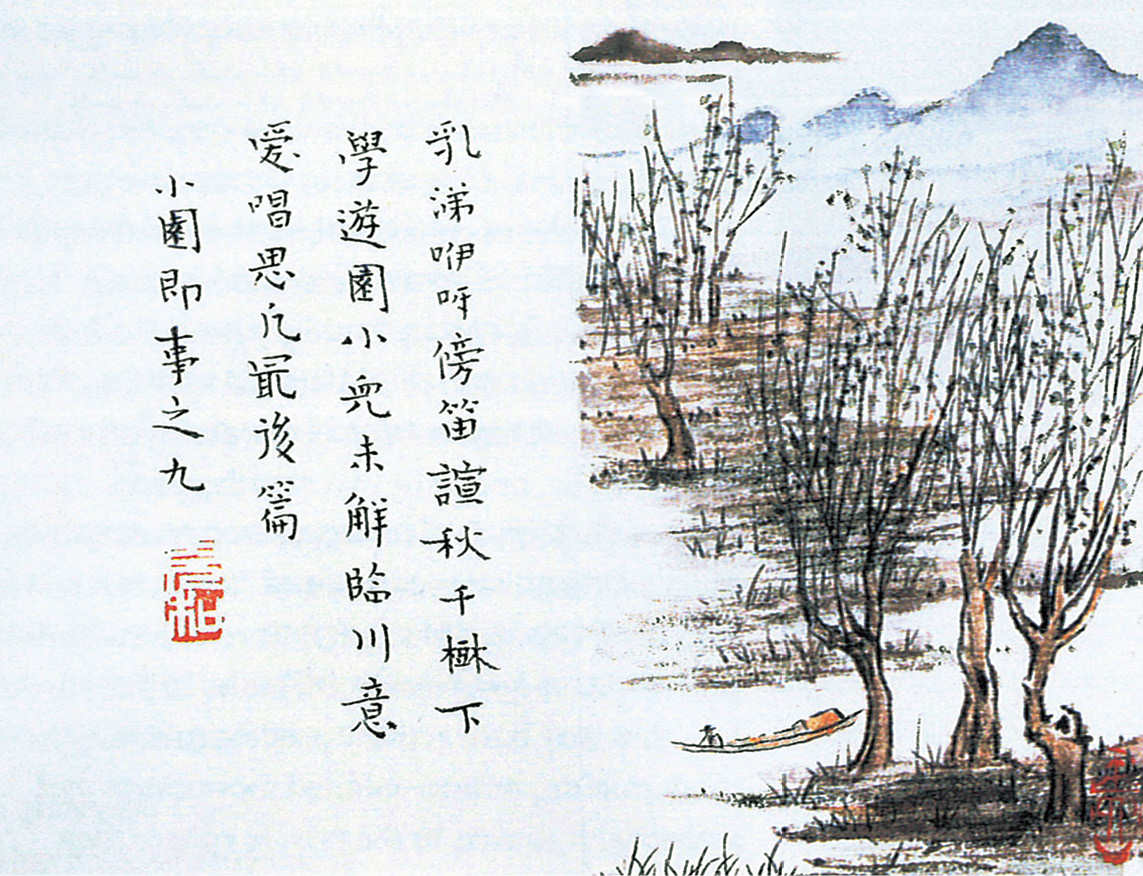 乳涕咿呀傍笛諠秋千下
學遊園小兒未解臨川意
愛唱思凡最後篇
小園即事之九
充和